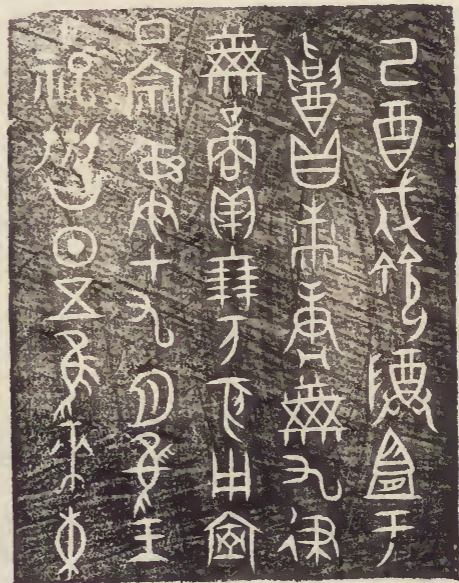 己酉戍鈴尊宜于
召庸舞九律
舞商貝朋万用
丁宗彝在九月隹王
十祀劦日五隹來東